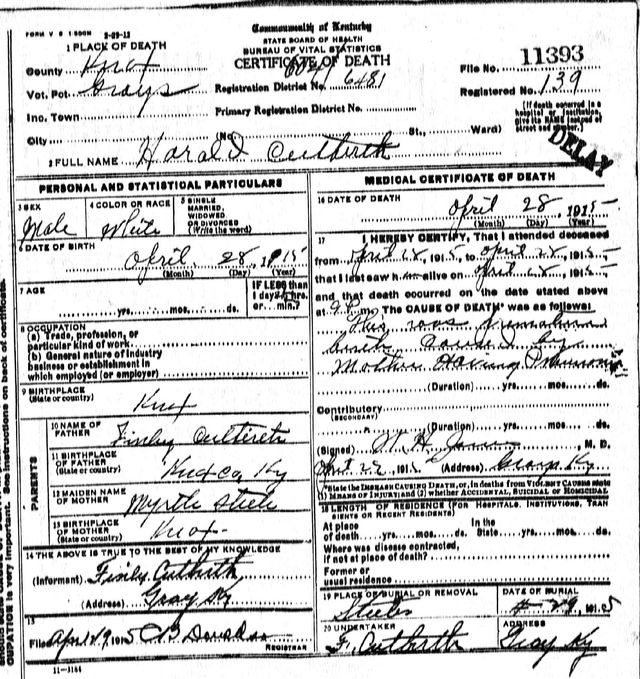 FORM V S 1 500M 2-29-12
Commonwealth of Kentucky
STATE BOARD OF HEALTH
BUREAU OF VITAL STATISTICS
CERTIFICATE OF DEATH
1 PLACE OF DEATH
County Knox
Vot. Pct. Grays
Inc. Town
City
Registration District No. 6481
Primary Registration District No.
(No. St., Ward)
File No. 11393
Registered No. 139
(If death occurred in a hospital or institution, give its NAME instead of street and number.)
DELAY
2 FULL NAME Harold Cutbirth
PERSONAL AND STATISTICAL PARTICULARS
3 SEX
Male
4 COLOR OR RACE
White
5 SINGLE
MARRIED,
WIDOWED
OR DIVORCED
(Write the word)
6 DATE OF BIRTH
April 28, 1915
(Month) (Day) (Year)
7 AGE
yrs. mos. ds.
IF LESS than
1 day hrs.
or min.?
8 OCCUPATION
(a) Trade, profession, or
particular kind of work
(b) General nature of industry
business or establishment in
which employed (or employer)
9 BIRTHPLACE
(State or country)
Knox
PARENTS
10 NAME OF
FATHER Finley Cutbirth
11 BIRTHPLACE
OF FATHER
(State or country) Knox co, Ky
12 MAIDEN NAME
OF MOTHER Myrtle Steele
13 BIRTHPLACE
OF MOTHER
(State or country) Knox
14 THE ABOVE IS TRUE TO THE BEST OF MY KNOWLEDGE
(Informant) Finly Cutbirth
(Address) Gray Ky
15
Filed Apr 29, 1915
REGISTRAR
11-3184
MEDICAL CERTIFICATE OF DEATH
16 DATE OF DEATH
April 28, 1915
(Month) (Day) (Year)
17 I HEREBY CERTIFY, That I attended deceased
from April 28, 1915, to April 28, 1915
that I last saw h alive on April 28, 1915
and that death occurred on the date stated above
at 9 P m. The CAUSE OF DEATH* was as follows:
This was Premature
birth Caused by
Mother Having Pneumonia
(Duration) yrs. mos. ds.
Contributory
(SECONDARY)
(Duration) yrs. mos. ds.
(Signed) M. D.
1915 (Address) Grays Ky
*State the DISEASE CAUSING DEATH, or, in deaths from VIOLENT CAUSES state
(1) MEANS OF INJURY; and (2) whether ACCIDENTAL, SUICIDAL or HOMICIDAL
18 LENGTH OF RESIDENCE (FOR HOSPITALS, INSTITUTIONS, TRAN
SIENTS OR RECENT RESIDENTS)
At place In the
of death yrs. mos. ds. State yrs. mos. ds.
Where was disease contracted,
if not at place of death?
Former or
usual residence
19 PLACE OF BURIAL OR REMOVAL
Steeles
DATE OF BURIAL
4-29, 1915
20 UNDERTAKER
F. Cutbirth
ADDRESS
Gray Ky
CUPATION is very important. See instructions on back of certificate.